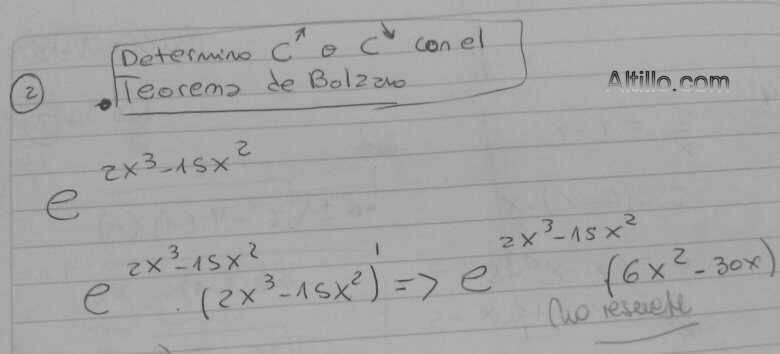 Determino C↗ o C↘ con el
Teorema de Bolzano
Altillo.com
2
e^2x³-15x²
e^2x³-15x² . (2x³-15x²)' => e^2x³-15x² (6x²-30x)